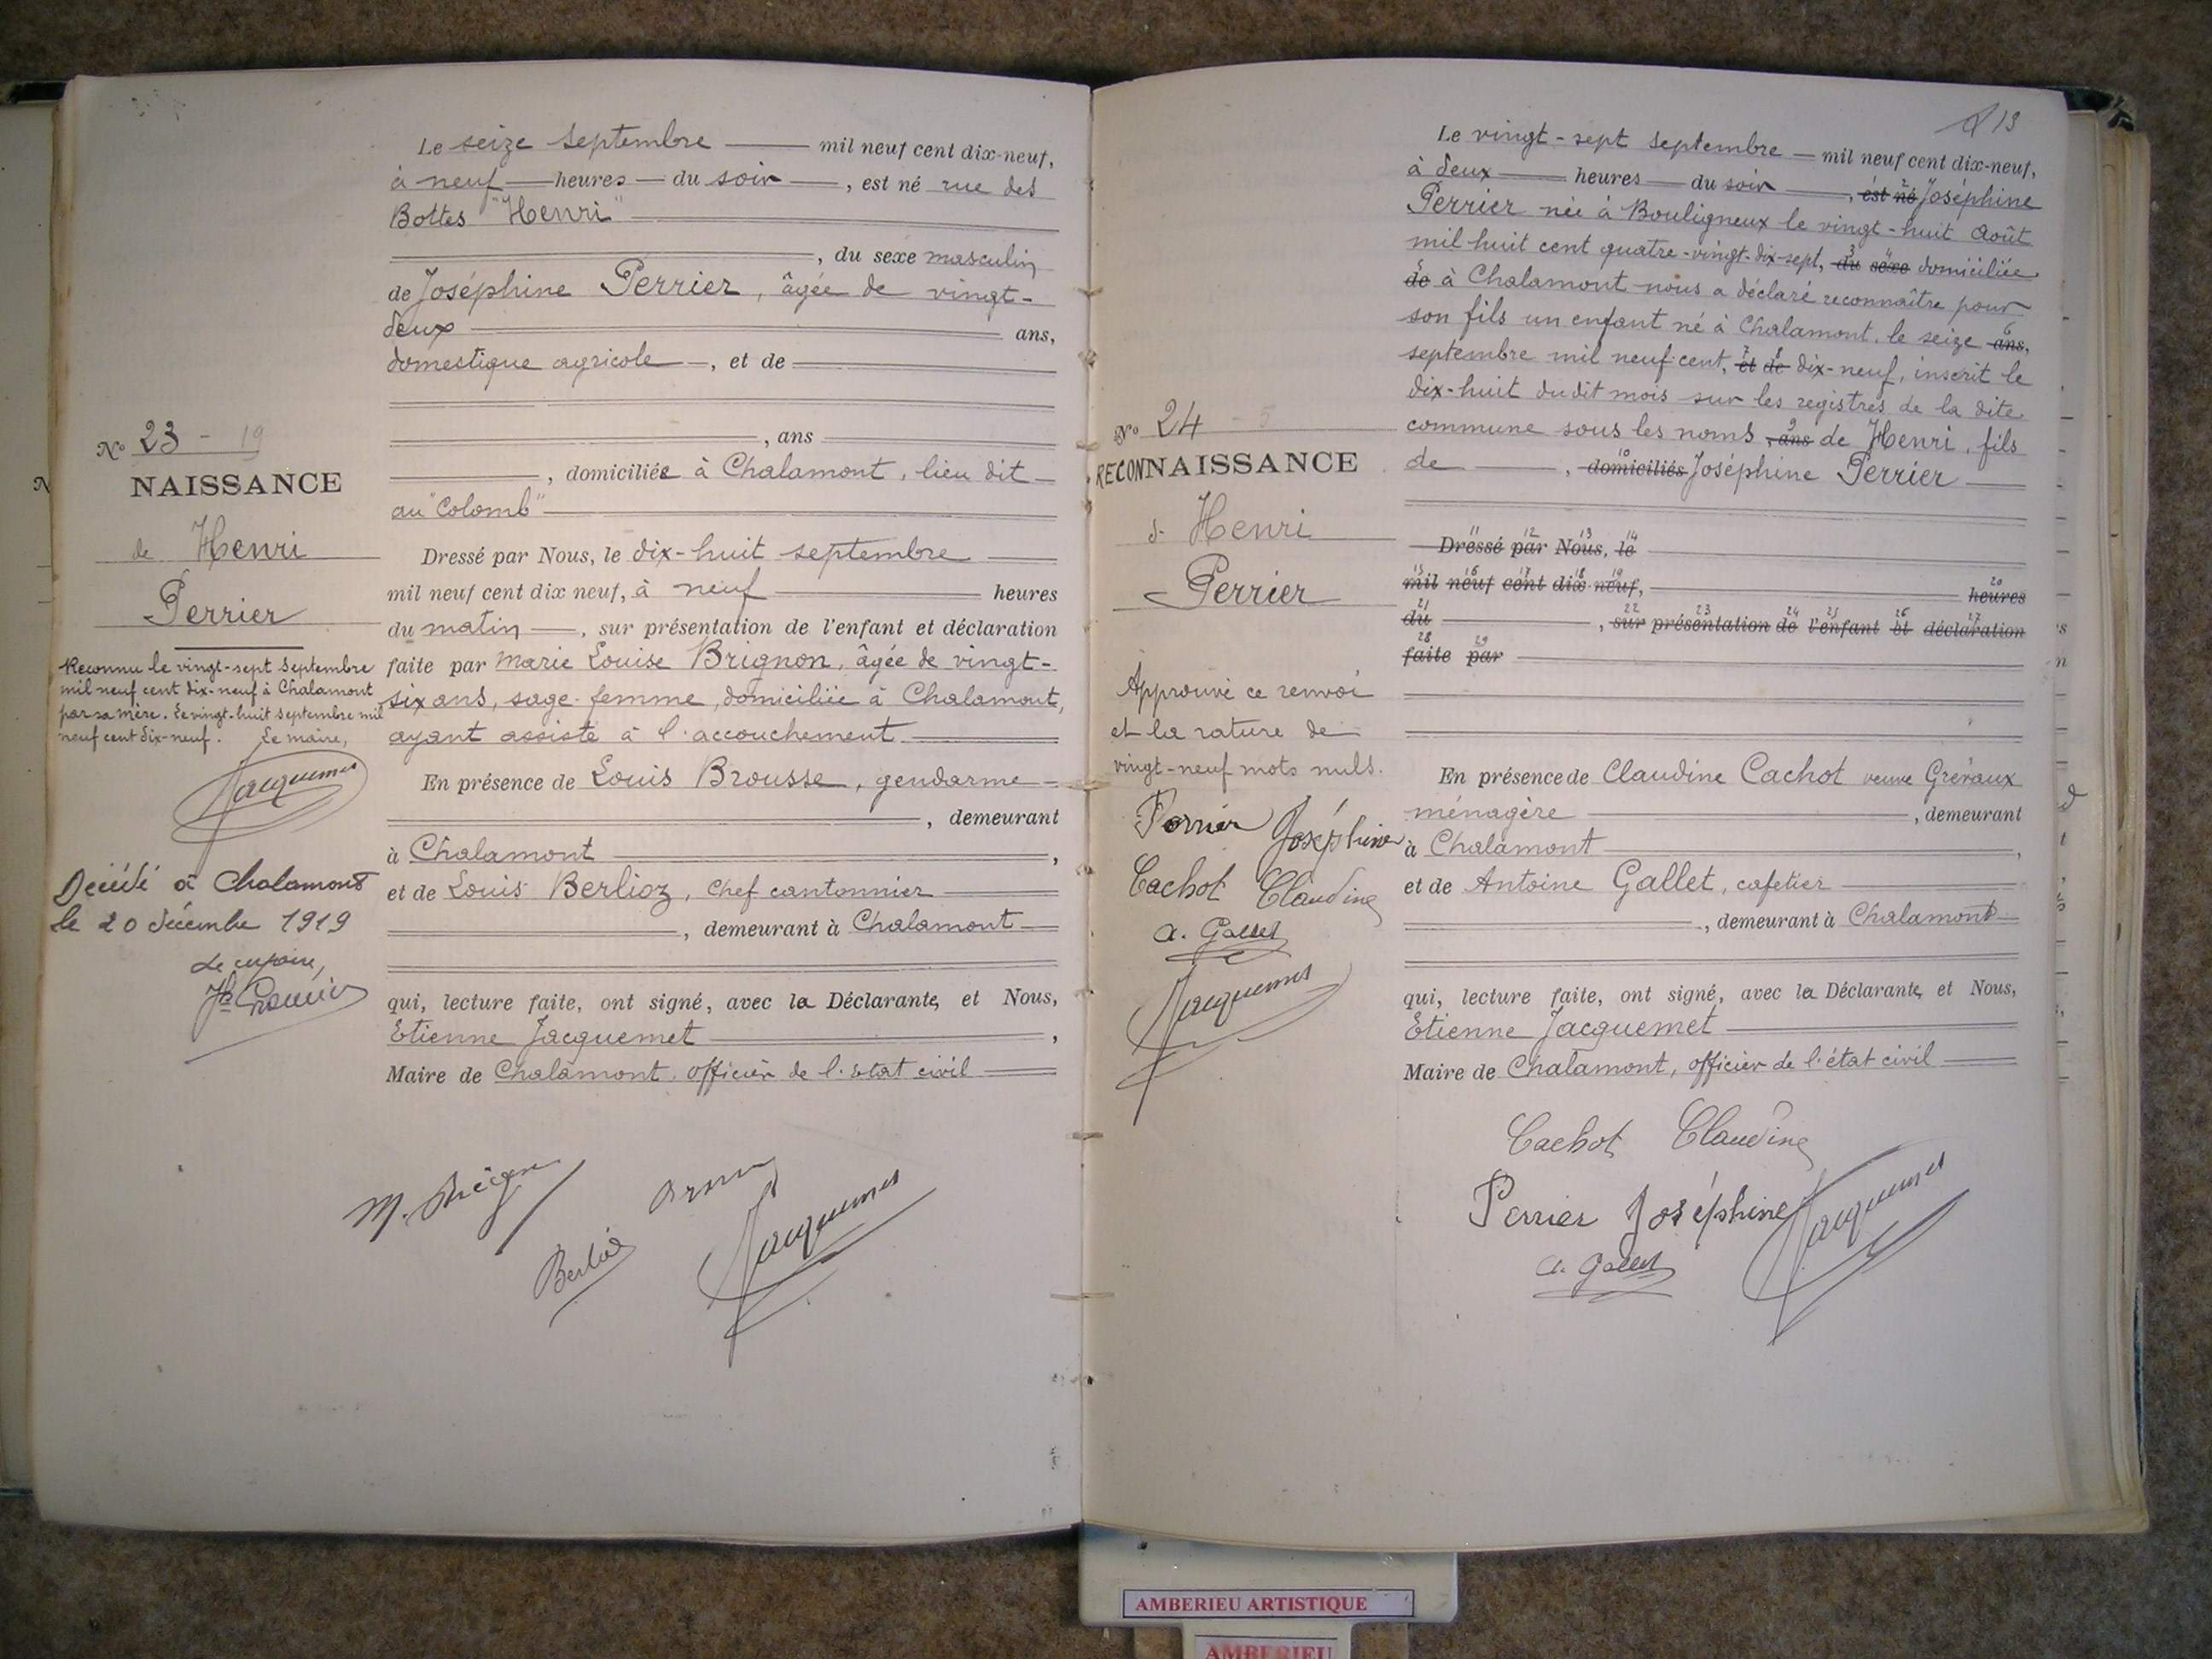 Le seize septembre mil neuf cent dix-neuf,
à neuf heures du soir, est né rue des
Bottes "Henri"
, du sexe masculin
de Joséphine Perrier, âgée de vingt-
deux ans,
domestique agricole, et de
, ans
, domiciliée à Chalamont, lieu dit
au "Colomb"
Dressé par Nous, le dix-huit septembre
mil neuf cent dix neuf, à neuf heures
du matin, sur présentation de l'enfant et déclaration
faite par Marie Louise Brignon, âgée de vingt-
six ans, sage-femme, domiciliée à Chalamont,
ayant assisté à l'accouchement.
En présence de Louis Brousse, gendarme
, demeurant
à Chalamont,
et de Louis Berlioz, chef cantonnier
, demeurant à Chalamont
qui, lecture faite, ont signé, avec la Déclarante, et Nous,
Etienne Jacquemet,
Maire de Chalamont, officier de l'état civil
Berlioz
Jacquemet
No 23 - 19
NAISSANCE
de Henri
Perrier
Reconnu le vingt-sept septembre
mil neuf cent dix-neuf à Chalamont
par sa mère. Le vingt-huit septembre mil
neuf cent dix-neuf. Le maire,
Jacquemet
Décédé à Chalamont
le 20 décembre 1919
13
Le vingt-sept septembre mil neuf cent dix-neuf,
à deux heures du soir, est né Joséphine
Perrier née à Bouligneux le vingt-huit Août
mil huit cent quatre-vingt-dix-sept, du sexe domiciliée
de à Chalamont nous a déclaré reconnaître pour
son fils un enfant né à Chalamont, le seize ans,
septembre mil neuf cent, et de dix-neuf, inscrit le
dix-huit du dit mois sur les registres de la dite
commune sous les noms, ans de Henri, fils
de , domiciliés Joséphine Perrier
Dressé par Nous, le
mil neuf cent dix neuf, heures
du , sur présentation de l'enfant et déclaration
faite par
En présence de Claudine Cachot veuve Gréraux
ménagère, demeurant
à Chalamont,
et de Antoine Gallet, cafetier
, demeurant à Chalamont
qui, lecture faite, ont signé, avec la Déclarante, et Nous,
Etienne Jacquemet
Maire de Chalamont, officier de l'état civil
Cachot Claudine
Perrier Joséphine Jacquemet
A. Gallet
No 24
RECONNAISSANCE
d' Henri
Perrier
Approuvé ce renvoi
et la rature de
vingt-neuf mots nuls.
Perrier Joséphine
Cachot Claudine
A. Gallet
Jacquemet
AMBERIEU ARTISTIQUE
AMBERIEU